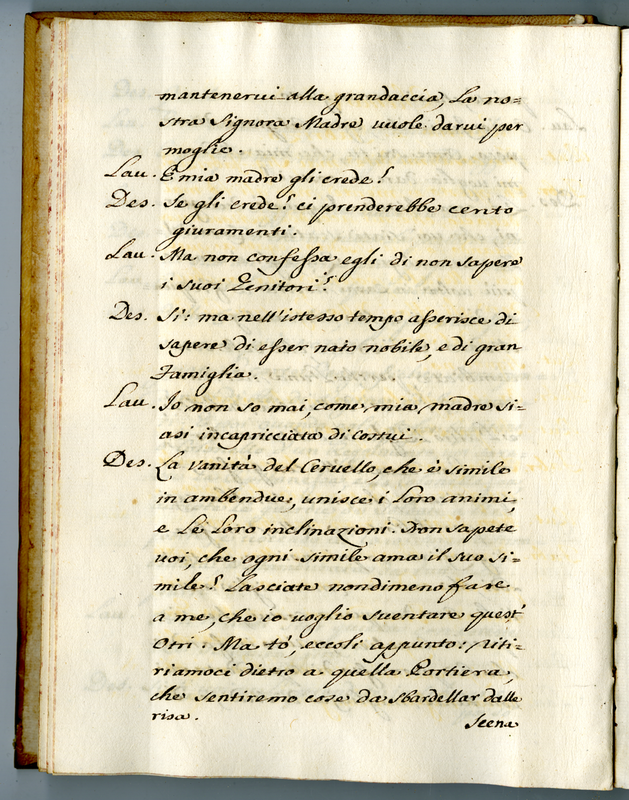 mantenervi alla grandaccia, La no=
stra Signora Madre vuole darvi per
moglie.
Lau. E mia madre gli crede?
Des. Se gli crede? ci prenderebbe cento
giuramenti.
Lau. Ma non confessa egli di non sapere
i suoi Genitori?
Des. Sì: ma nell'istesso tempo asserisce di
sapere di esser nato nobile, e di gran
Famiglia.
Lau. Io non so mai, come mia madre si=
asi incapricciata di costui.
Des. La vanità del Cervello, che è simile
in ambendue, unisce i Loro animi,
e Le Loro inclinazioni. Non sapete
voi, che ogni simile ama il suo si=
mile? Lasciate nondimeno fare
a me, che io voglio sventare quest'
Otri. Ma tò, eccoli appunto: riti=
riamoci dietro a quella Portiera,
che sentiremo cose da sbardellar dalle
risa.
Scena